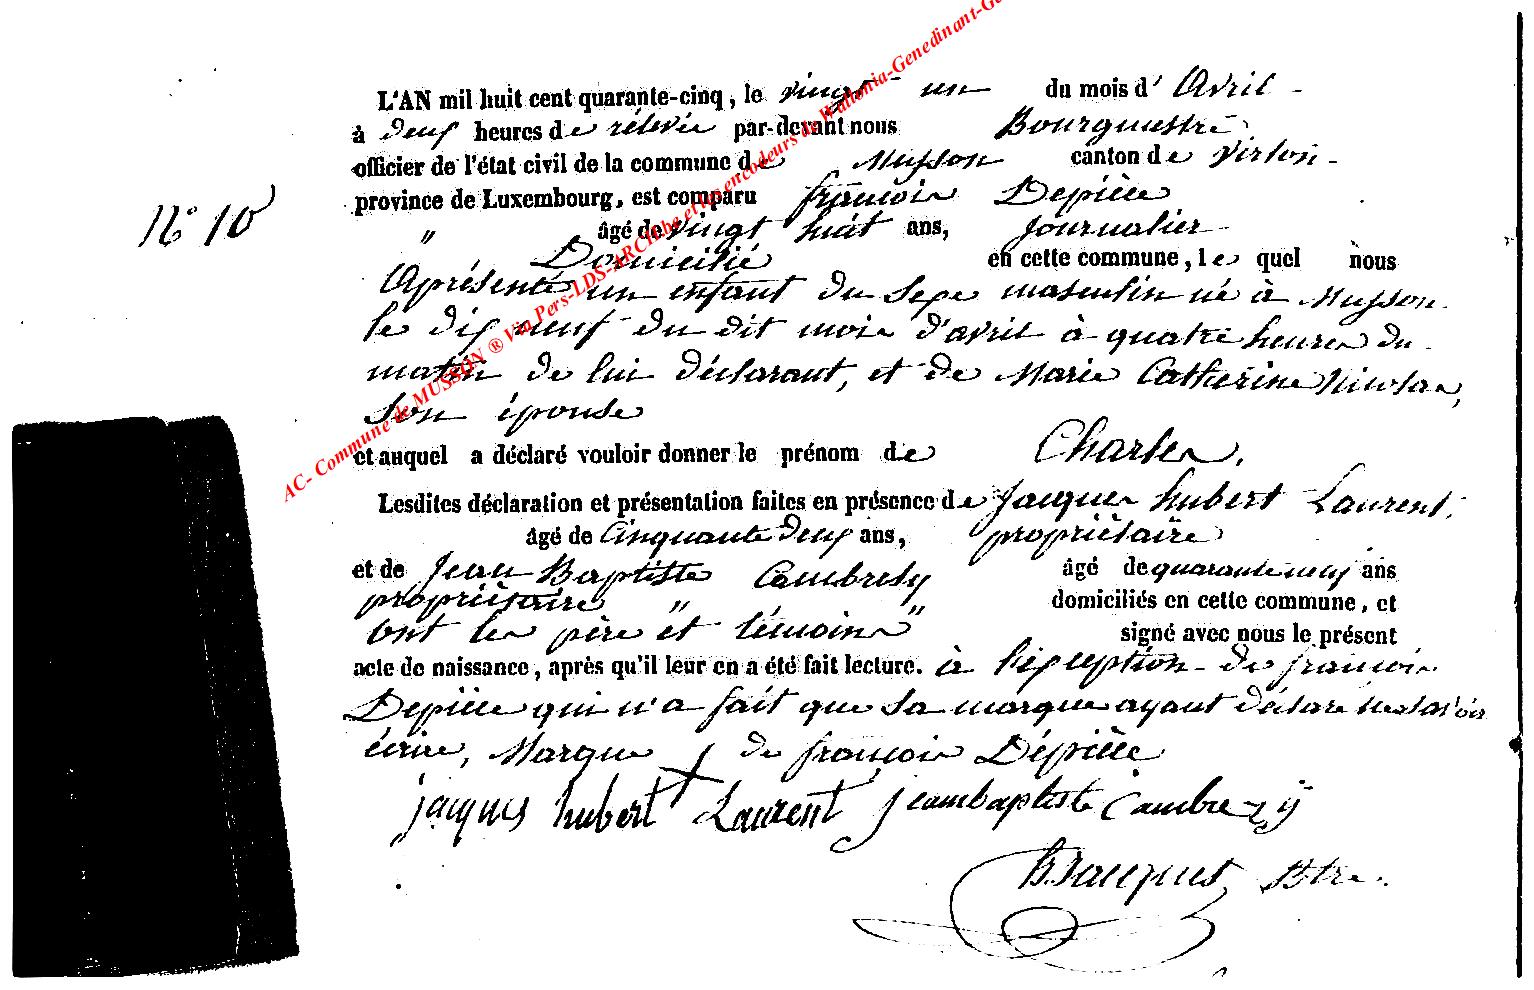 L'AN mil huit cent quarante-cinq, le vingt un du mois d'Avril
à deux heures de rélevée par-devant nous Bourguestre
officier de l'état civil de la commune de Musson canton de Virton
province de Luxembourg, est comparu françois Depiéce
N° 10 " âgé de vingt huit ans, Journalier
Domicilié en cette commune, le quel nous
Aprésenté un enfant du sexe masculin né à Musson
le dix neuf du dit mois d'avril à quatre heures du
matin de lui déclarant, et de Marie Catherine Nicolas,
son épouse
et auquel a déclaré vouloir donner le prénom de Charles,
Lesdites déclaration et présentation faites en présence de Jacques hubert Laurent,
âgé de Cinquante deux ans, propriétaire
et de Jean Baptiste Cambresy âgé de quarante neuf ans
propriétaire " domiciliés en cette commune, et
ont les père et témoins " signé avec nous le présent
acte de naissance, après qu'il leur en a été fait lecture. à l'éxception de françois
Depiéce qui n'a fait que sa marque ayant déclaré ne savoir
écrire, Marque de françois Dépiéce
jacques hubert Laurent jeanbaptiste Cambrezÿ
Jacques, Btre.
AC- Commune de MUSSON ® Via Pers-LDS-ARCH.be et les encodeurs de Wallonia-Genedinant-Ge